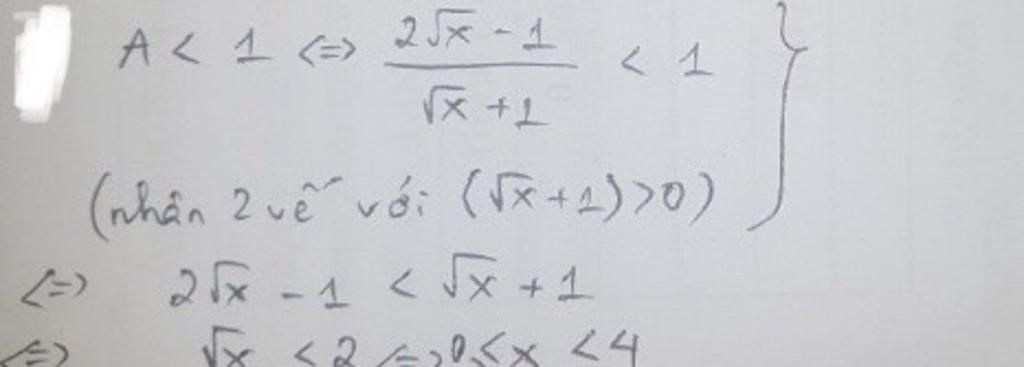 A < 1 <=> (2√x - 1)/(√x + 1) < 1 }
(nhân 2 vế với (√x + 1) > 0)
<=> 2√x - 1 < √x + 1
<=> √x < 2 <=> 0 ≤ x < 4